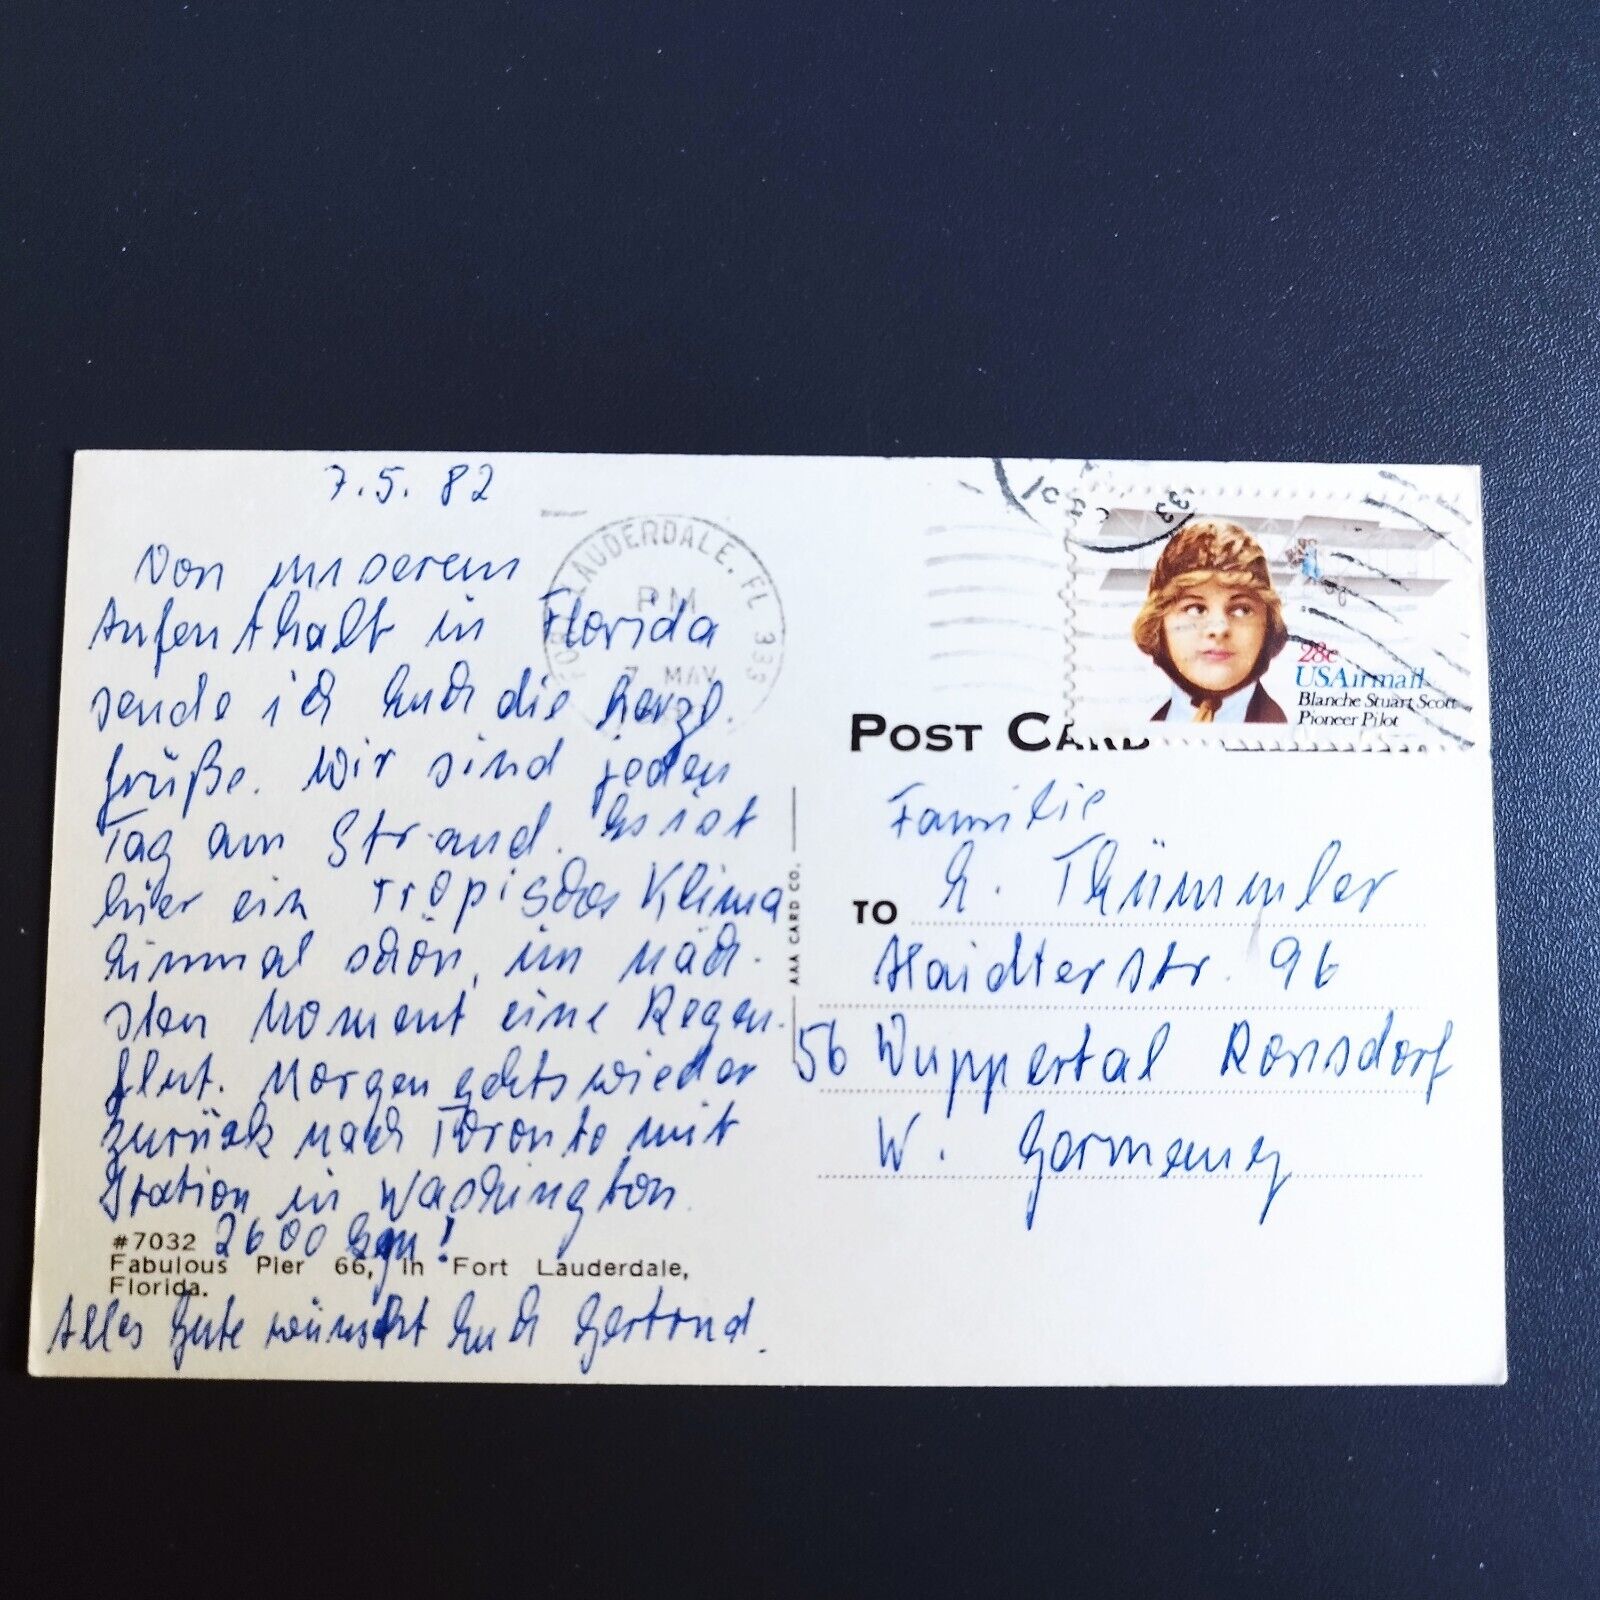 7.5.82
Von unserem
Aufenthalt in Florida
sende ich Euch die herzl.
Grüße. Wir sind jeden
Tag am Strand. Es ist
hier ein tropisches Klima
Einmal schön, im näch-
sten Moment eine Regen-
flut. Morgen gehts wieder
zurück nach Toronto mit
Station in Washington.
2600 km!
#7032
Fabulous Pier 66, in Fort Lauderdale,
Florida.
Alles Gute wünscht Euch Gertrud.
LAUDERDALE, FL 333
PM
7 MAY
AAA CARD CO.
28c
USAirmail
Blanche Stuart Scott
Pioneer Pilot
POST CARD
Familie
TO E. Thümmler
Haidterstr. 96
56 Wuppertal Ronsdorf
W. Germany